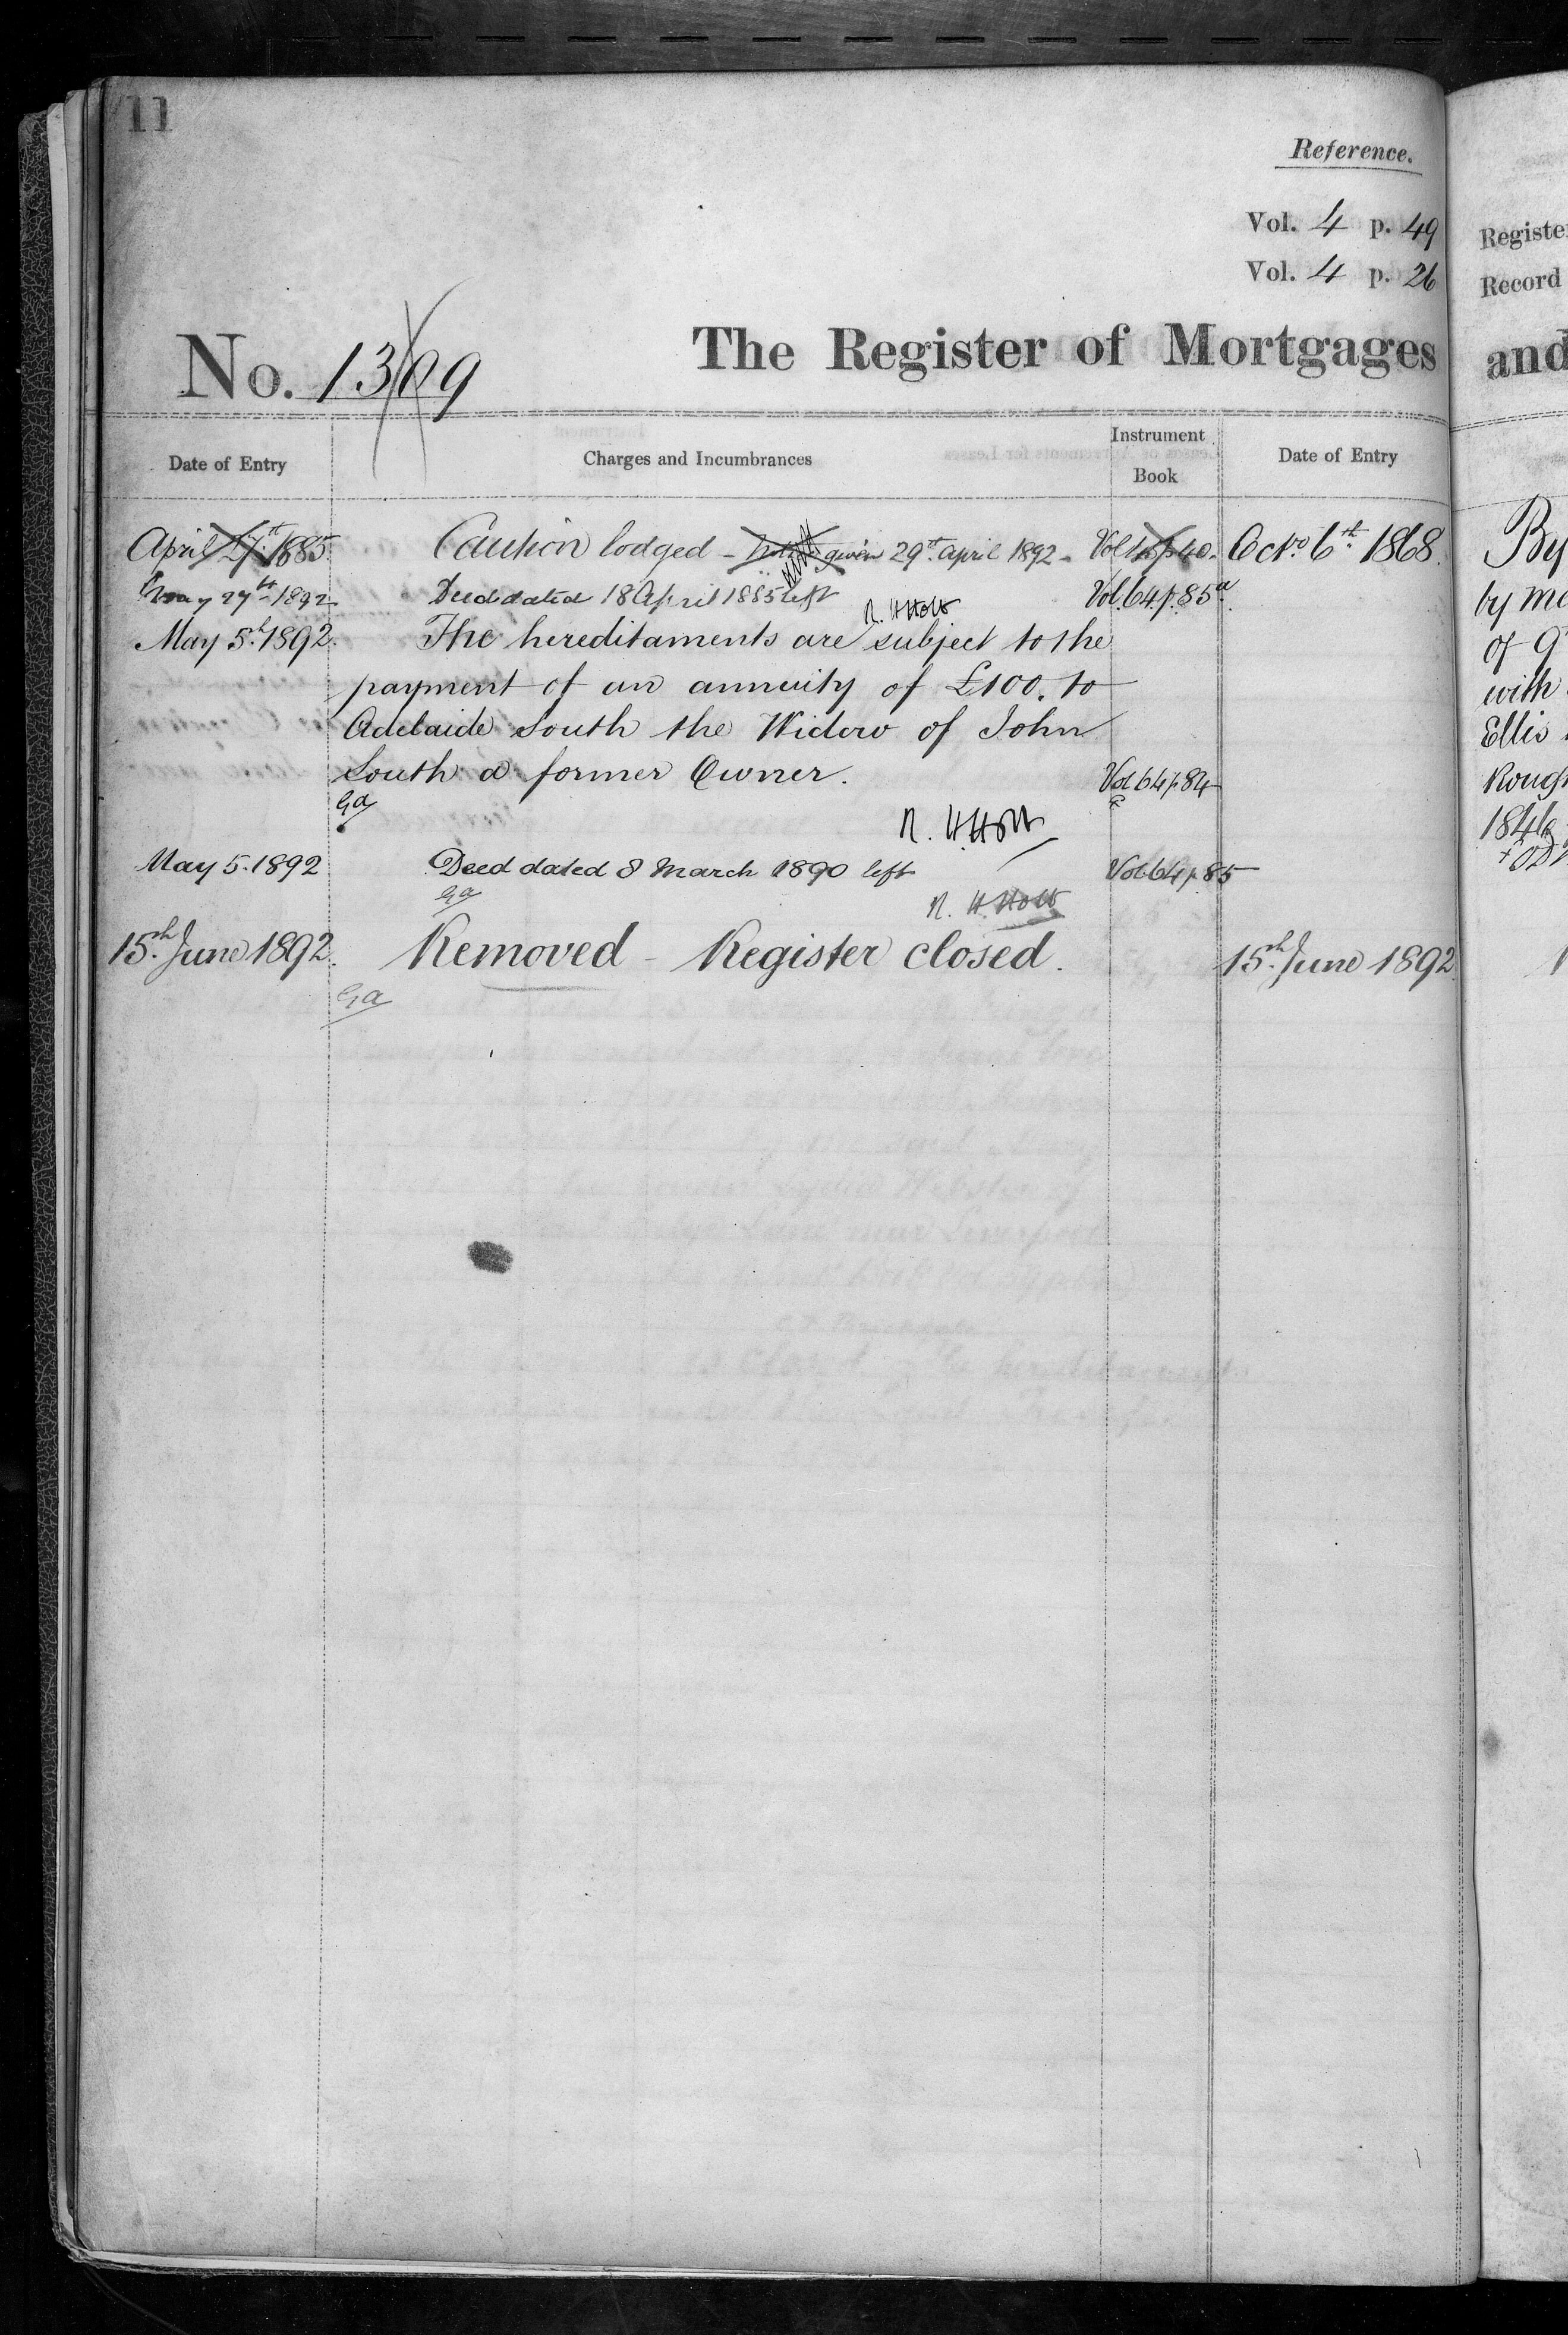 11
Reference.
Vol. 4 p. 49
Vol. 4 p. 26
No. 1309
The Register of Mortgages
Date of Entry
Charges and Incumbrances
Instrument Book
Date of Entry
April 27th 1885. Caution lodged - given 29th April 1892 - Vol p 40. Octr 6th 1868.
May 27th 1892 Deed dated 18 April 1885 left Vol. 64 p. 85a
R. H. Holt
May 5th 1892. The hereditaments are subject to the
payment of an annuity of £100. to
Adelaide South the Widow of John
South a former Owner. Vol 64 p 84
Ga
R. H. Holt
May 5. 1892 Deed dated 8 March 1890 left Vol. 64 p. 85
Ga
R. H. Holt
15th June 1892. Removed - Register closed. 15th June 1892
Ga
Register
Record
and
By
by me
of
with
Ellis
Rough
1846